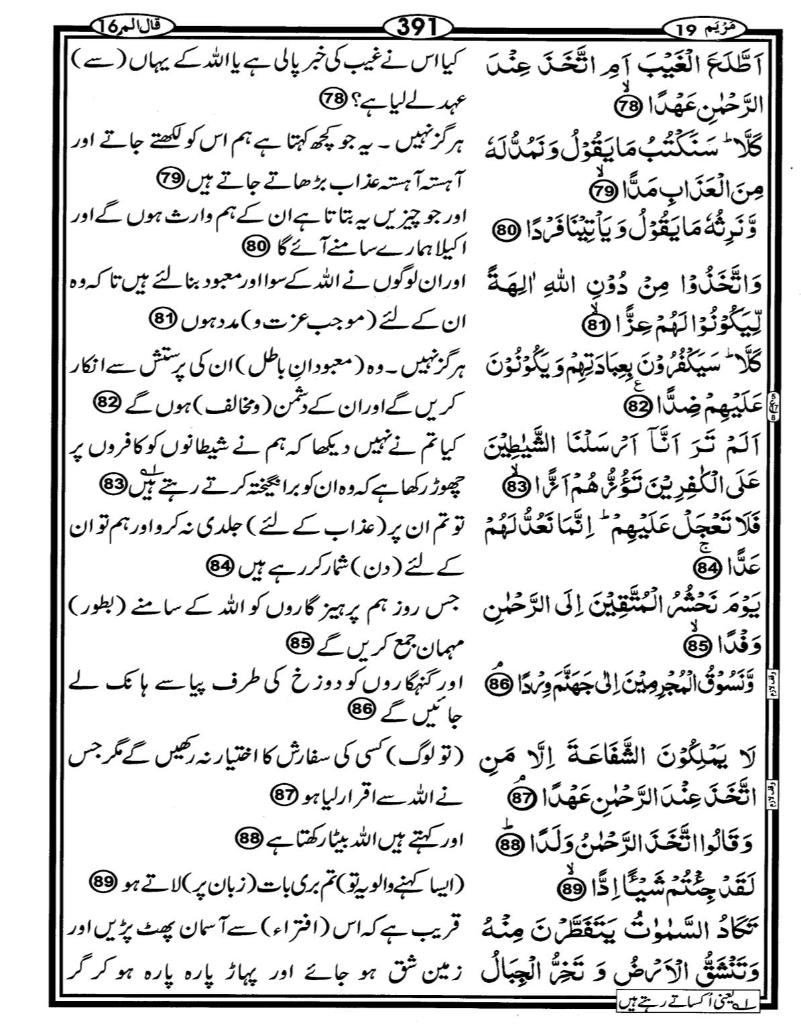 مَرْيَم 19
391
قال الم 16
اَطَّلَعَ الْغَيْبَ اَمِ اتَّخَذَ عِنْدَ
الرَّحْمٰنِ عَهْدًا ۙ 78
كَلَّا ؕ سَنَكْتُبُ مَا يَقُوْلُ وَنَمُدُّ لَهٗ
مِنَ الْعَذَابِ مَدًّا ۙ 79
وَّنَرِثُهٗ مَا يَقُوْلُ وَيَاْتِيْنَا فَرْدًا 80
وَاتَّخَذُوْا مِنْ دُوْنِ اللّٰهِ اٰلِهَةً
لِّيَكُوْنُوْا لَهُمْ عِزًّا ۙ 81
كَلَّا ؕ سَيَكْفُرُوْنَ بِعِبَادَتِهِمْ وَيَكُوْنُوْنَ
عَلَيْهِمْ ضِدًّا ع 82
اَلَمْ تَرَ اَنَّآ اَرْسَلْنَا الشَّيٰطِيْنَ
عَلَى الْكٰفِرِيْنَ تَؤُزُّهُمْ اَزًّا ۙ 83
فَلَا تَعْجَلْ عَلَيْهِمْ ؕ اِنَّمَا نَعُدُّ لَهُمْ
عَدًّا ۚ 84
يَوْمَ نَحْشُرُ الْمُتَّقِيْنَ اِلَى الرَّحْمٰنِ
وَفْدًا ۙ 85
وَّنَسُوْقُ الْمُجْرِمِيْنَ اِلٰى جَهَنَّمَ وِرْدًا ۘ 86
لَا يَمْلِكُوْنَ الشَّفَاعَةَ اِلَّا مَنِ
اتَّخَذَ عِنْدَ الرَّحْمٰنِ عَهْدًا ۘ 87
وَقَالُوا اتَّخَذَ الرَّحْمٰنُ وَلَدًا ؕ 88
لَقَدْ جِئْتُمْ شَيْـًٔا اِدًّا ۙ 89
تَكَادُ السَّمٰوٰتُ يَتَفَطَّرْنَ مِنْهُ
وَتَنْشَقُّ الْاَرْضُ وَ تَخِرُّ الْجِبَالُ
کیا اس نے غیب کی خبر پالی ہے یا اللہ کے یہاں (سے)
عہد لے لیا ہے؟ 78
ہرگز نہیں ۔ یہ جو کچھ کہتا ہے ہم اس کو لکھتے جاتے اور
آہستہ آہستہ عذاب بڑھاتے جاتے ہیں 79
اور جو چیزیں یہ بتاتا ہے ان کے ہم وارث ہوں گے اور
اکیلا ہمارے سامنے آئے گا 80
اور ان لوگوں نے اللہ کے سوا اور معبود بنا لئے ہیں تاکہ وہ
ان کے لئے (موجب عزت و) مدد ہوں 81
ہرگز نہیں ۔ وہ (معبودانِ باطل) ان کی پرستش سے انکار
کریں گے اور ان کے دشمن (و مخالف) ہوں گے 82
کیا تم نے نہیں دیکھا کہ ہم نے شیطانوں کو کافروں پر
چھوڑ رکھا ہے کہ وہ ان کو برانگیختہ کرتے رہتے ہیں۱؎ 83
تو تم ان پر (عذاب کے لئے) جلدی نہ کرو اور ہم تو ان
کے لئے (دن) شمار کر رہے ہیں 84
جس روز ہم پرہیز گاروں کو اللہ کے سامنے (بطور)
مہمان جمع کریں گے 85
اور گنہگاروں کو دوزخ کی طرف پیاسے ہانک لے
جائیں گے 86
(تو لوگ) کسی کی سفارش کا اختیار نہ رکھیں گے مگر جس
نے اللہ سے اقرار لیا ہو 87
اور کہتے ہیں اللہ بیٹا رکھتا ہے 88
(ایسا کہنے والو یہ تو) تم بری بات (زبان پر) لاتے ہو 89
قریب ہے کہ اس (افتراء) سے آسمان پھٹ پڑیں اور
زمین شق ہو جائے اور پہاڑ پارہ پارہ ہو کر گر
وقف لازم
وقف لازم
۱؎ یعنی اُکساتے رہتے ہیں